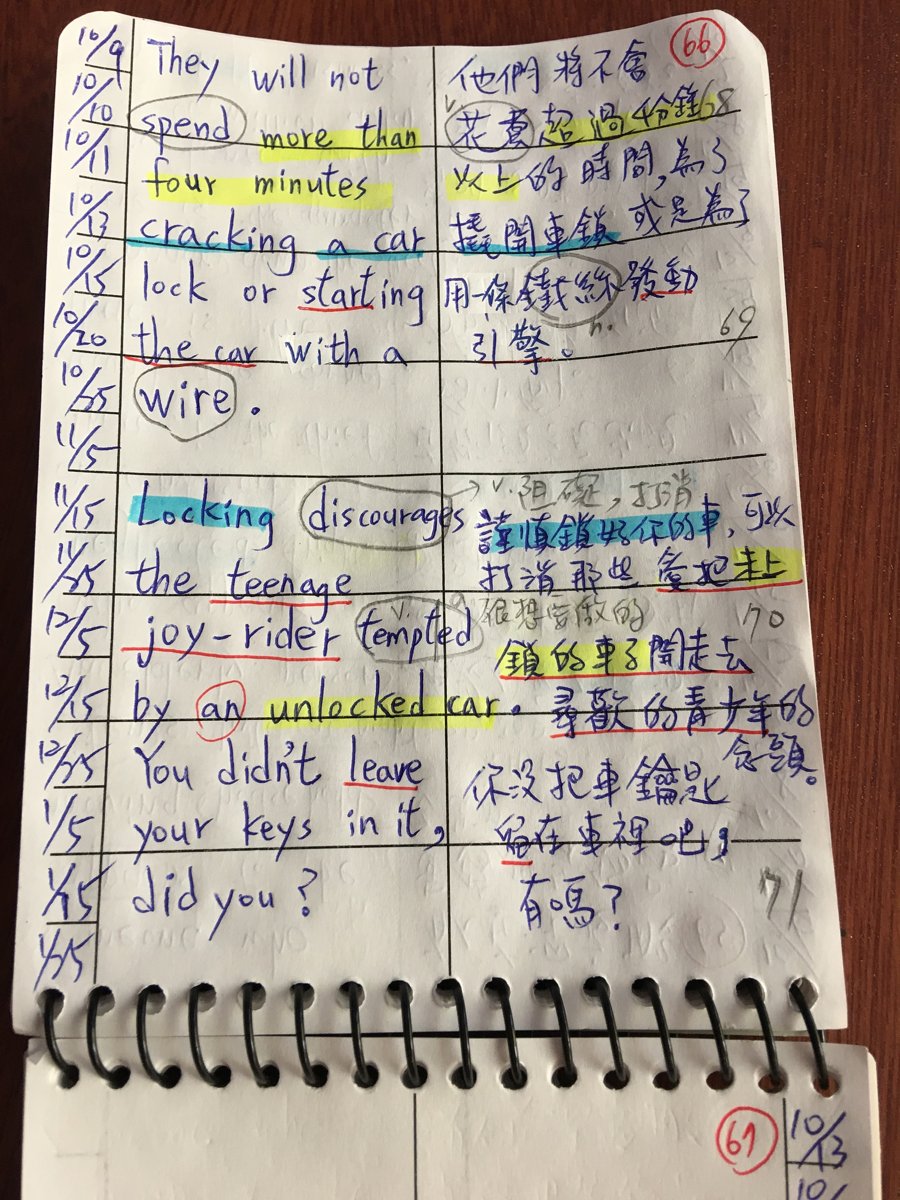 10/9
10/10
10/11
10/13
10/15
10/20
10/25
11/5
11/15
11/25
12/5
12/15
12/25
1/5
1/15
1/25
They will not
spend more than
four minutes
cracking a car
lock or starting
the car with a
wire.
Locking discourages
the teenage
joy-rider tempted
by an unlocked car.
You didn't leave
your keys in it,
did you?
66
他們將不會
v.
花費超過4分鐘68
以上的時間,為了
撬開車鎖 或是為了
用一條鐵絲發動
n. 69
引擎。
→ v. 阻礙,打消
謹慎鎖好你的車,可以
打消那些 會把未上
v. 很想要做的 70
鎖的車子開走去
尋歡的青少年的
念頭。
你沒把車鑰匙
留在車裡吧,
有嗎? 71
10/13
10/